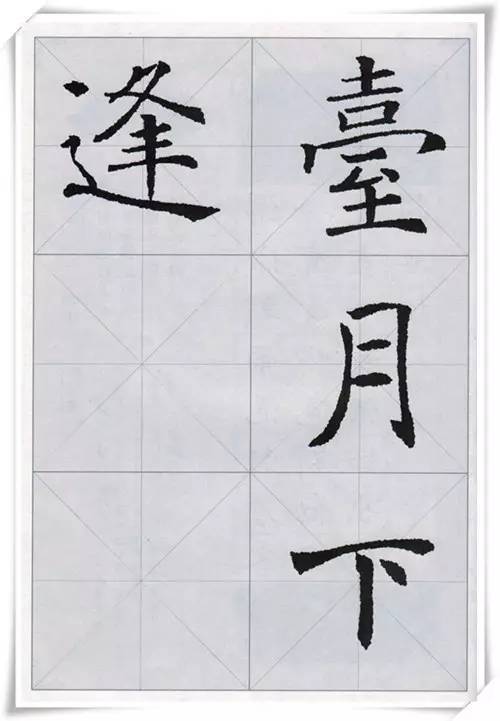 臺月下
逢